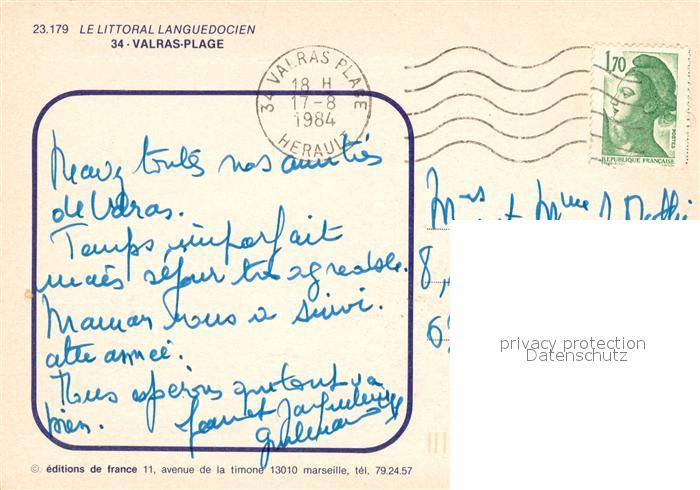 23.179 LE LITTORAL LANGUEDOCIEN
34 - VALRAS-PLAGE
34 VALRAS PLAGE
18 H
17-8
1984
HERAULT
1,70
POSTES
REPUBLIQUE FRANÇAISE
Recevez toutes nos amitiés
de Valras.
Temps imparfait
mais séjour très agréable.
Maman nous a suivi
cette année.
Nous espérons que tout va
bien. Jean et Jacqueline
Mrs et Mme
8,
6
privacy protection
Datenschutz
©. éditions de france 11, avenue de la timone 13010 marseille, tél. 79.24.57